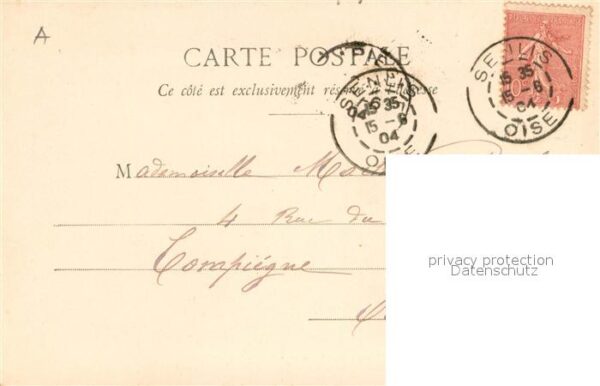 A
CARTE POSTALE
Ce côté est exclusivement rés à l'adresse
SENLIS
15 35
15 - 6
04
OISE
SENLIS
15 35
15 - 6
04
OISE
Mademoiselle
4 Rue du
Compiègne
privacy protection
Datenschutz